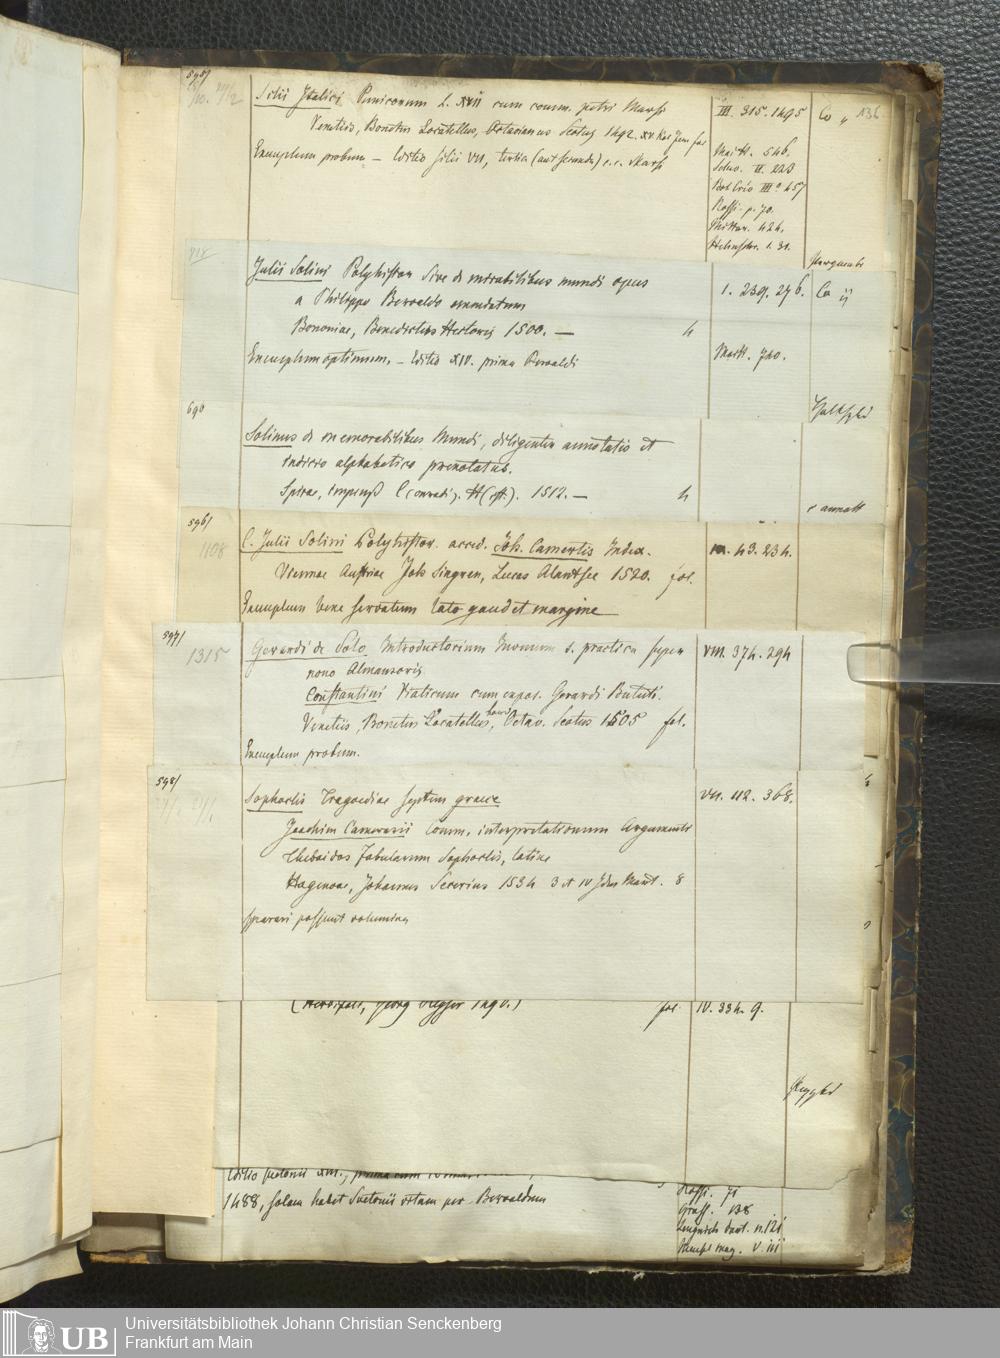 595/
Silii Italici Punicorum L. XVII cum comm. petri Marsi
III. 315. 1495
Co
136
Venetiis, Bonetus Locatellus, Octavianus Scotus 1492. XV Kal Jun fol
Exemplum probum — Editio Silii VII, tertia (aut secunda) c. c. Marsi
Maitt. 546.
II. 223
III. 457
Rossi p. 70.
424.
1. 31.
Pergament
Julii Solini Polyhistor Sive de mirabilibus mundi opus
1. 239. 276. Co ij
a Philippo Beroaldo emendatum
Bononiae, Benedictus Hectoris 1500. — 4
Exemplum optimum. — Editio XIV. prima Beroaldi
Maitt. 740.
690
Solinus de memorabilibus Mundi, diligenter annotatis et
indicio alphabetico prenotatus.
Spirae, impens. C(onradi). H(ist). 1512. — 4
596/
1108
C. Julii Solini Polyhistor. acced. Joh. Camertis Index.
43. 234.
Viennae Austriae Joh Singren, Lucas Alantsee 1520. fol.
Exemplum bene servatum lato gaudet margine
597/
1315
Gerardi de Solo Introductorium Iuvenum s. practica super
VIII. 374. 294
nono Almansoris
Constantini Viaticum cum expos. Gerardi Bututi.
Venetiis, Bonetus Locatellus, Octav. Scotus 1505 fol.
Exemplum probum.
598/
Sophoclis Tragoediae Septem graece
VII. 112. 368.
Joachim Camerarii Comm. interpretationum Argumenti
Thebaidos Fabularum Sophoclis, latine
Hagenoae, Johannes Secerius 1534 3 et IV Idus Mart. 8
separari possunt volumina
(Herbipoli, Georg Reyser 1490.) fol. IV. 334. 9.
Editio Suetonii XIII., prima cum
1488, solam habet Suetonii vitam per Beroaldum
Rossi. 71
Graff. 138
n. 121
mag. V. III
UB
Universitätsbibliothek Johann Christian Senckenberg
Frankfurt am Main